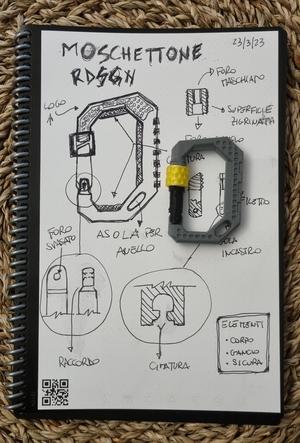 MOSCHETTONE
RDSGN
23/3/23
LOGO
FORO
MASCHIATO
SUPERFICIE
ZIGRINATA
FORO
SVASATO
ASOLA PER
ANELLO
INCASTRO
RACCORDO
ELEMENTI
• CORPO
• GANCIO
• SICURA